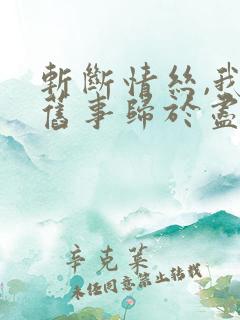 斬斷情絲,我
舊事歸於盡
辛克萊
未经同意禁止转载